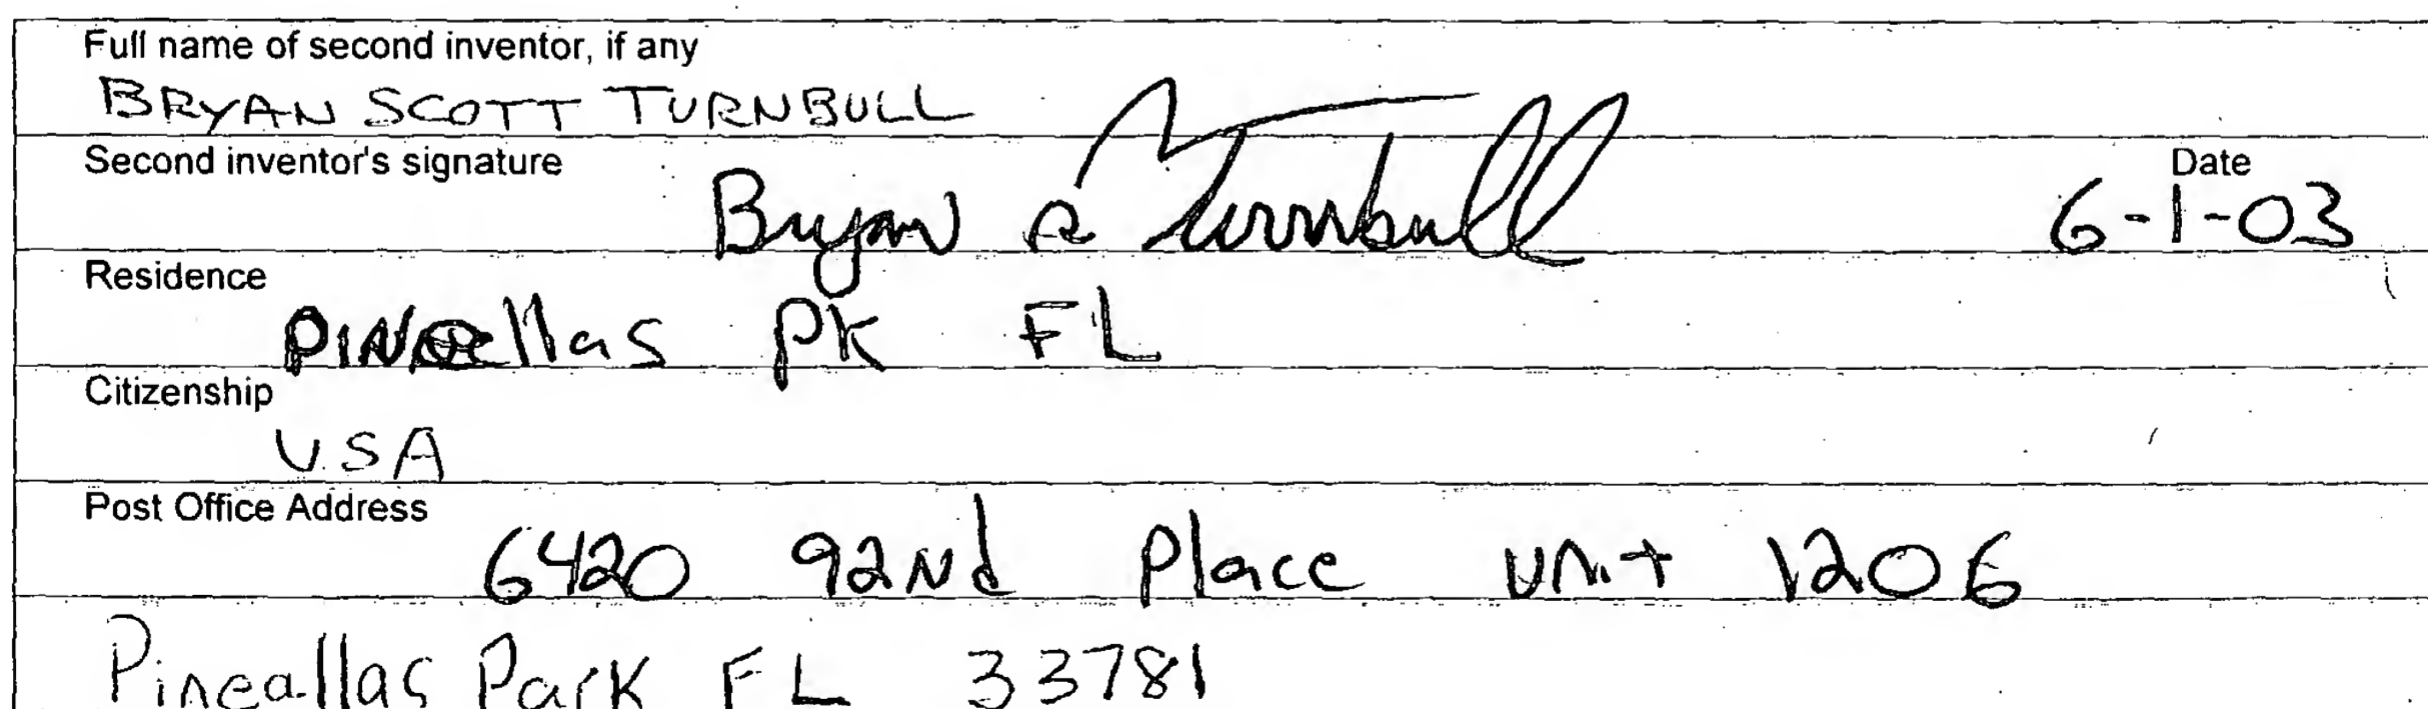 Full name of second inventor, if any
BRYAN SCOTT TURNBULL
Second inventor's signature Bryan S Turnbull Date
6-1-03
Residence
PINellas PK FL
Citizenship
USA
Post Office Address
6420 92Nd Place Unit 1206
Pineallas Park FL 33781